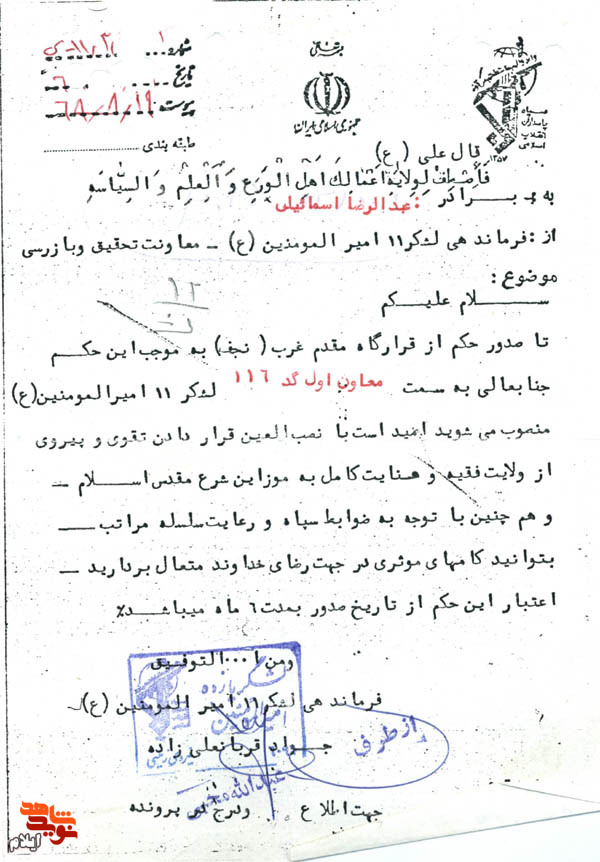 بسمه تعالی
شماره ۱
تاریخ
پیوست ۶۸/۸/۱۹
طبقه بندی
جمهوری اسلامی ایران
سپاه
پاسداران
انقلاب
اسلامی
۱۳۵۷
قال علی (ع)
فَاَصْطَفِ لِوِلایَةِ اَعْمالِكَ اَهْلَ الْوَرَعِ وَ الْعِلْمِ وَ السِّیاسَةِ
به : بـــرادر : عبدالرضا اسماعیلی
از : فرماندهی لشکر ۱۱ امیر المومنین (ع) – معاونت تحقیق و بازرسی
موضوع :
۱۲
ســـلام علیـــکم
تا صدور حکم از قرارگاه مقدم غرب ( نجف) به موجب این حکـــم
جنابعالی به سمت معاون اول گد ۱۱۶ لشکر ۱۱ امیرالمومنین (ع)
منصوب می شوید امید است با نصب العین قرار دادن تقوی و پیروی
از ولایت فقیه و عنایت کامل به موازین شرع مقدس اســـلام –
و هم چنین با توجه به ضوابط سپاه و رعایت سلسله مراتب –
بتوانید کامهای موثری در جهت رضای خداوند متعال بردارید –
اعتبار این حکم از تاریخ صدور بمدت ۶ ماه میباشد٪
ومن ا... التوفیق
فرماندهی لشکر ۱۱ امیر المومنین (ع)
لشکر یازده
امیرالمومنین
از طرف
جـــواد قربانعلی زاده
عبدالله
جهت اطلاع و درج در پرونده
نوید شاهد
ایلام